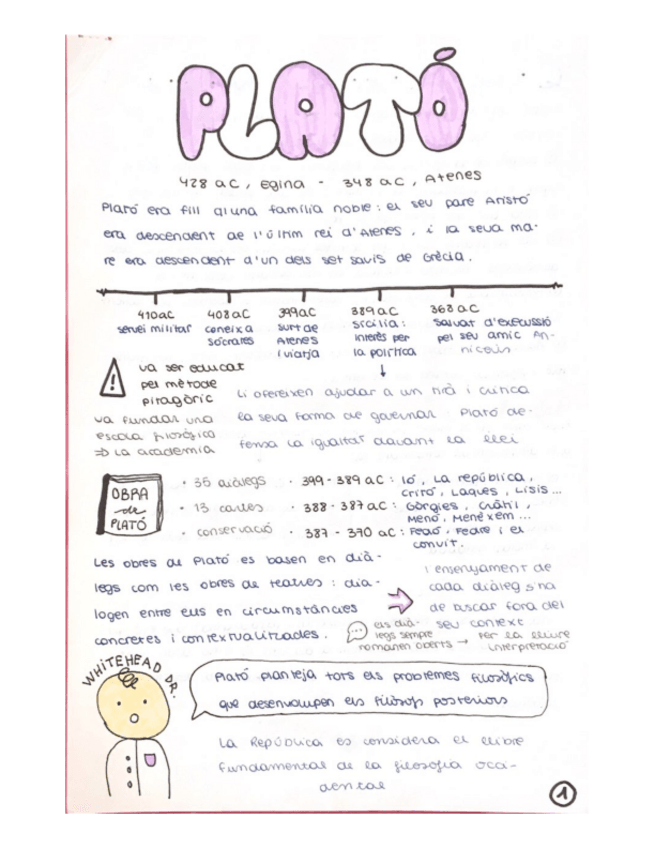 PLATÓ
428 aC, Egina - 348 aC, Atenes
Plató era fill d'una família noble: el seu pare Aristó
era descendent de l'últim rei d'Atenes, i la seva ma-
re era descendent d'un dels set savis de Grècia.
410aC
servei militar
408 aC
coneix a
Sòcrates
399aC
surt de
Atenes
i viatja
389aC
Sicília:
interès per
la política
368aC
salvat d'execussió
pel seu amic An-
niceris
va ser educat
pel mètode
pitagòric
va fundar una
escola filosòfica
⇒ La acadèmia
li ofereixen ajudar a un tirà i critica
la seva forma de governar. Plató de-
fensa la igualtat davant la llei
OBRA
de
PLATÓ
• 35 diàlegs
• 13 cartes
• conservació
• 399-389 aC: Ió, La república,
Critó, Laques, Lisis...
• 388-387 aC: Gòrgies, Cràtil,
Menó, Menéxem...
• 387-370 aC: Fedó, Fedre i el
convit.
Les obres de Plató es basen en dià-
legs com les obres de teatres: dia-
logen entre ells en circumstàncies
concretes i contextualitzades.
l'ensenyament de
cada diàleg s'ha
de buscar fora del
seu context
els dià-
legs sempre
romanen oberts → fer la lliure
interpretació
WHITEHEAD DR.
Plató planteja tots els problemes filosòfics
que desenvolupen els filòsofs posteriors
La República es considera el llibre
fundamental de la filosofia occi-
dental
1